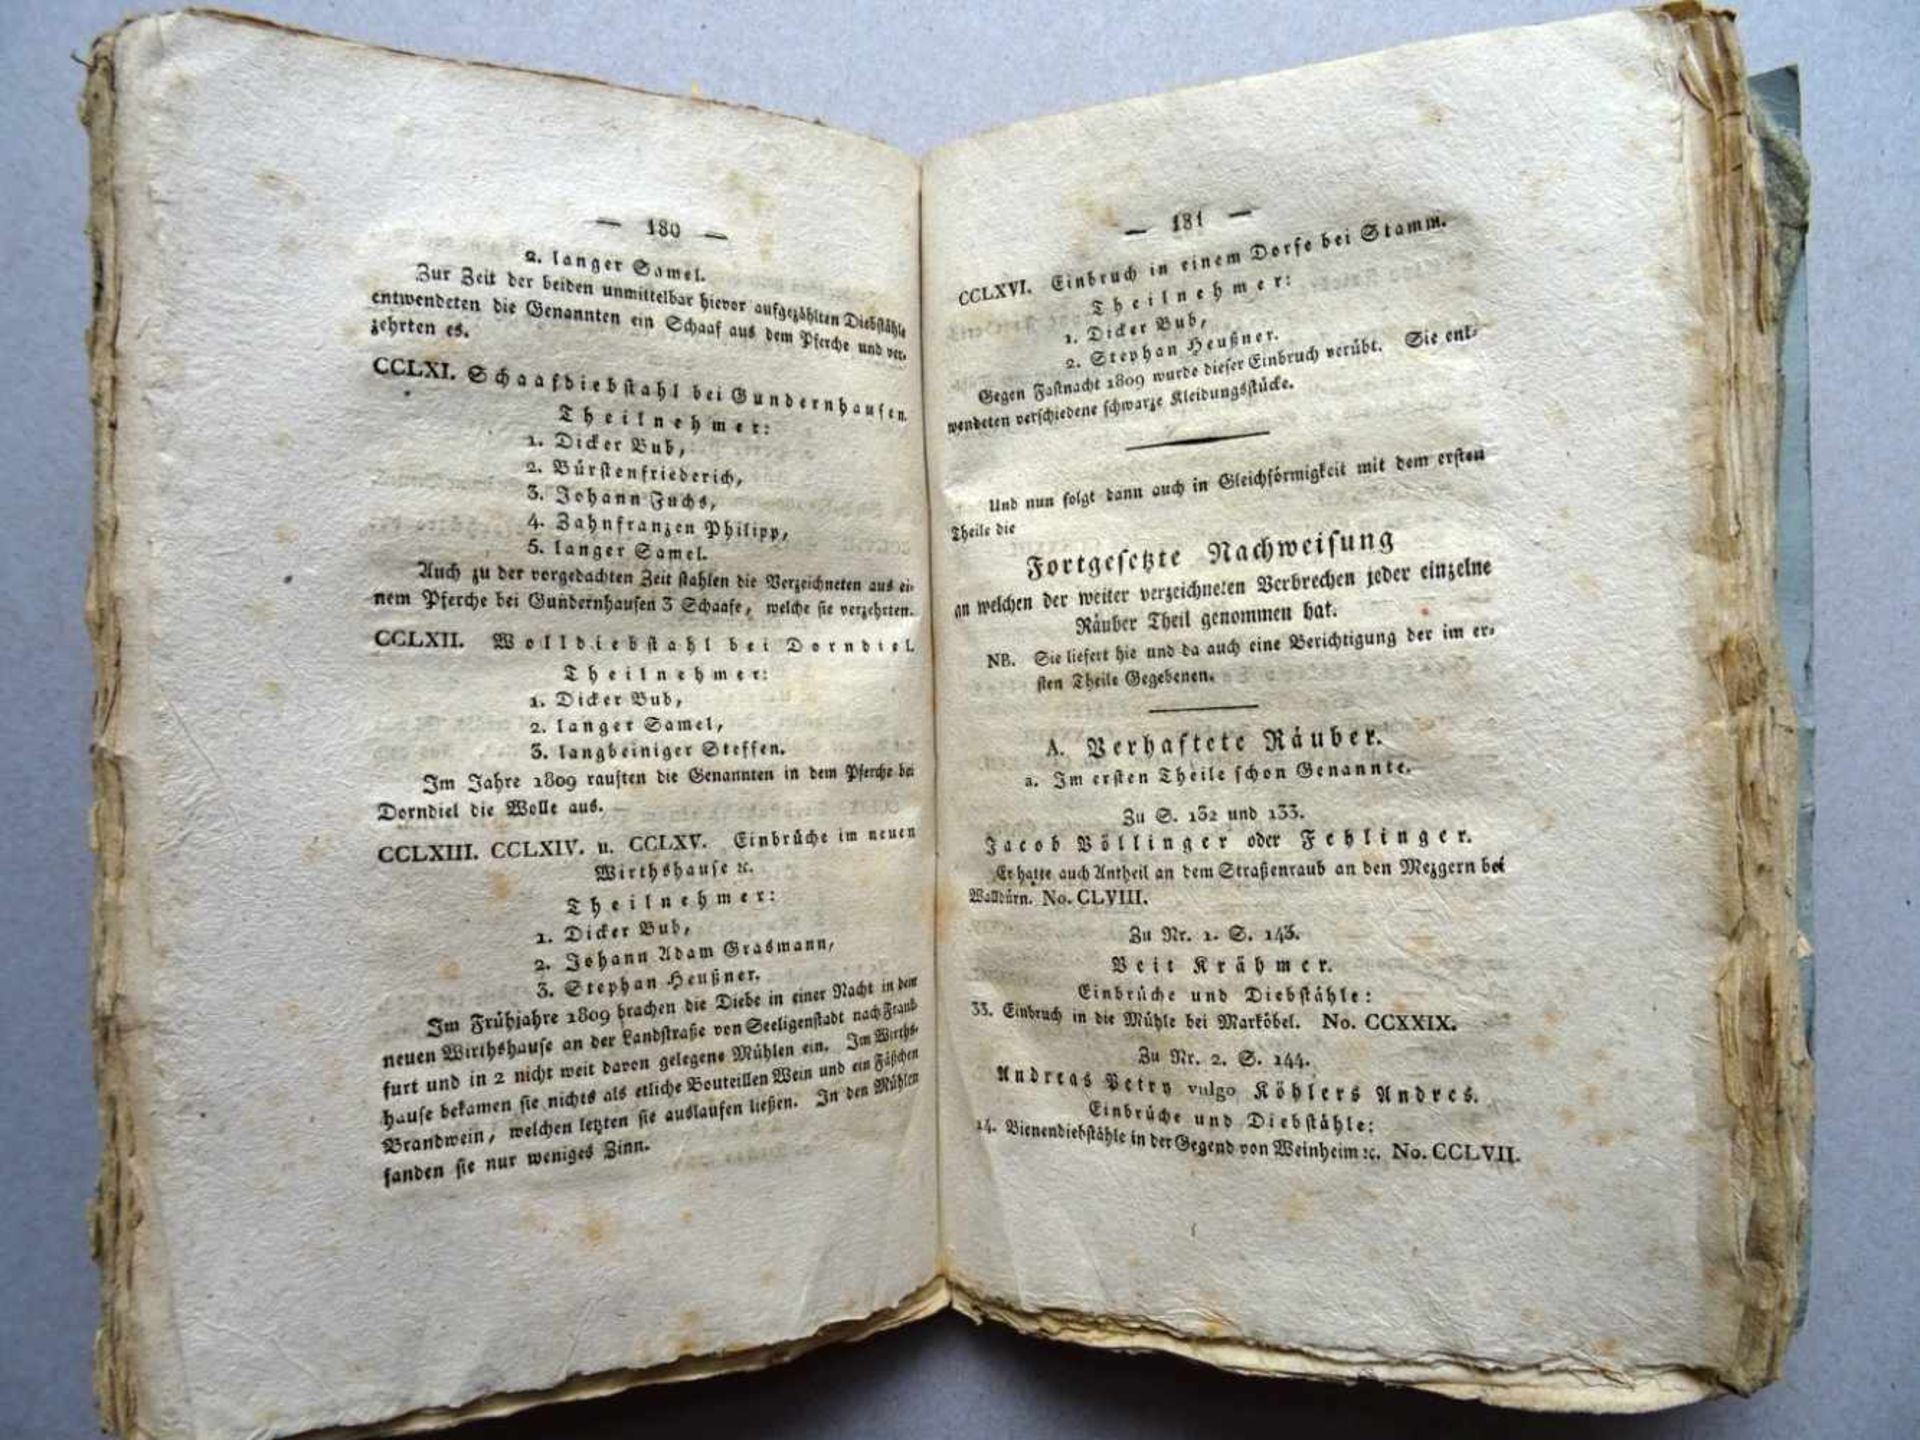 — 180 —
2. langer Samel.
Zur Zeit der beiden unmittelbar hievor aufgezählten Diebstähle
entwendeten die Genannten ein Schaaf aus dem Pferche und ver-
zehrten es.
CCLXI. Schaafdiebstahl bei Gundernhausen.
Theilnehmer:
1. Dicker Bub,
2. Bürstenfriederich,
3. Johann Fuchs,
4. Zahnfranzen Philipp,
5. langer Samel.
Auch zu der vorgedachten Zeit stahlen die Verzeichneten aus ei-
nem Pferche bei Gundernhausen 3 Schaafe, welche sie verzehrten.
CCLXII. Wolldiebstahl bei Dorndiel.
Theilnehmer:
1. Dicker Bub,
2. langer Samel,
3. langbeiniger Steffen.
Im Jahre 1809 rauften die Genannten in dem Pferche bei
Dorndiel die Wolle aus.
CCLXIII. CCLXIV. u. CCLXV. Einbrüche im neuen
Wirthshause ꝛc.
Theilnehmer:
1. Dicker Bub,
2. Johann Adam Grasmann,
3. Stephan Heußner.
Im Frühjahre 1809 brachen die Diebe in einer Nacht in dem
neuen Wirthshause an der Landstraße von Seeligenstadt nach Frank-
furt und in 2 nicht weit davon gelegene Mühlen ein. Im Wirths-
hause bekamen sie nichts als etliche Bouteillen Wein und ein Fäßchen
Brandwein, welchen letzten sie auslaufen ließen. In den Mühlen
fanden sie nur weniges Zinn.
— 181 —
CCLXVI. Einbruch in einem Dorfe bei Stamm.
Theilnehmer:
1. Dicker Bub,
2. Stephan Heußner.
Gegen Fastnacht 1809 wurde dieser Einbruch verübt. Sie ent-
wendeten verschiedene schwarze Kleidungsstücke.
Und nun folgt dann auch in Gleichförmigkeit mit dem ersten
Theile die
Fortgesetzte Nachweisung
an welchen der weiter verzeichneten Verbrechen jeder einzelne
Räuber Theil genommen hat.
NB. Sie liefert hie und da auch eine Berichtigung der im er-
sten Theile Gegebenen.
A. Verhaftete Räuber.
a. Im ersten Theile schon Genannte.
Zu S. 132 und 133.
Jacob Völlinger oder Fehlinger.
Er hatte auch Antheil an dem Straßenraub an den Mezgern bei
Walldürn. No. CLVIII.
Zu Nr. 1. S. 143.
Veit Krähmer.
Einbrüche und Diebstähle:
33. Einbruch in die Mühle bei Marköbel. No. CCXXIX.
Zu Nr. 2. S. 144.
Andreas Petry vulgo Köhlers Andres.
Einbrüche und Diebstähle:
14. Bienendiebstähle in der Gegend von Weinheim ꝛc. No. CCLVII.